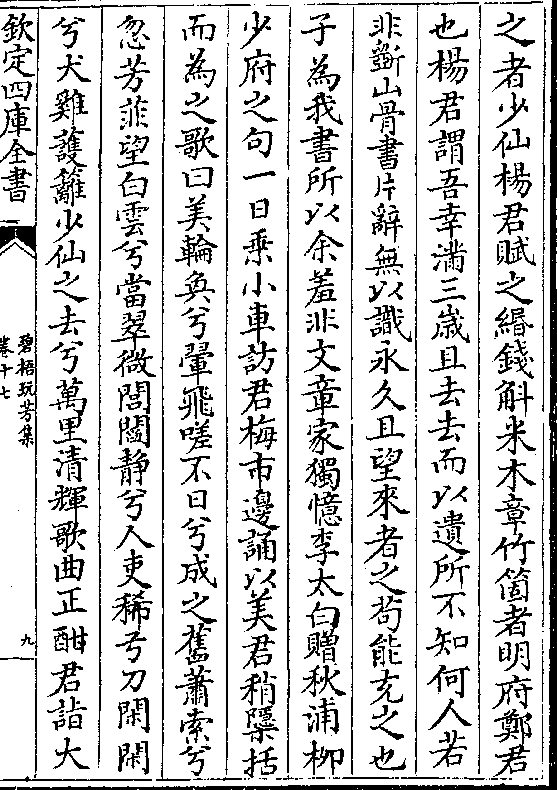 之者少仙楊君賦之緡錢斛米木章竹箇者明府鄭君
也楊君謂吾幸滿三歲且去去而以遺所不知何人若
非斵山骨書片辭無以識永久且望來者之茍能充之也
子為我書所以余羞非文章家獨憶李太白贈秋浦柳
少府之句一日乗小車訪君梅市邊誦以美君稍檃括
而為之歌曰美輪奐兮翬飛嗟不日兮成之舊蕭索兮
忽芳菲望白雲兮當翠微閭閻静兮人吏稀弓刀閑閑
兮犬雞䕶籬少仙之去兮萬里清輝歌曲正酣君詣大
欽定四庫全書
碧梧玩芳集
卷十七
九